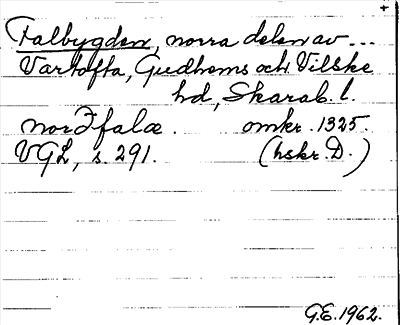 +
Falbygden, norra delen av ...
Vartofta, Gudhems och Vilske
hd, Skarab. l.
norðfalæ. omkr. 1325.
VGL, s. 291. (hskr. D.)
G.E. 1962.